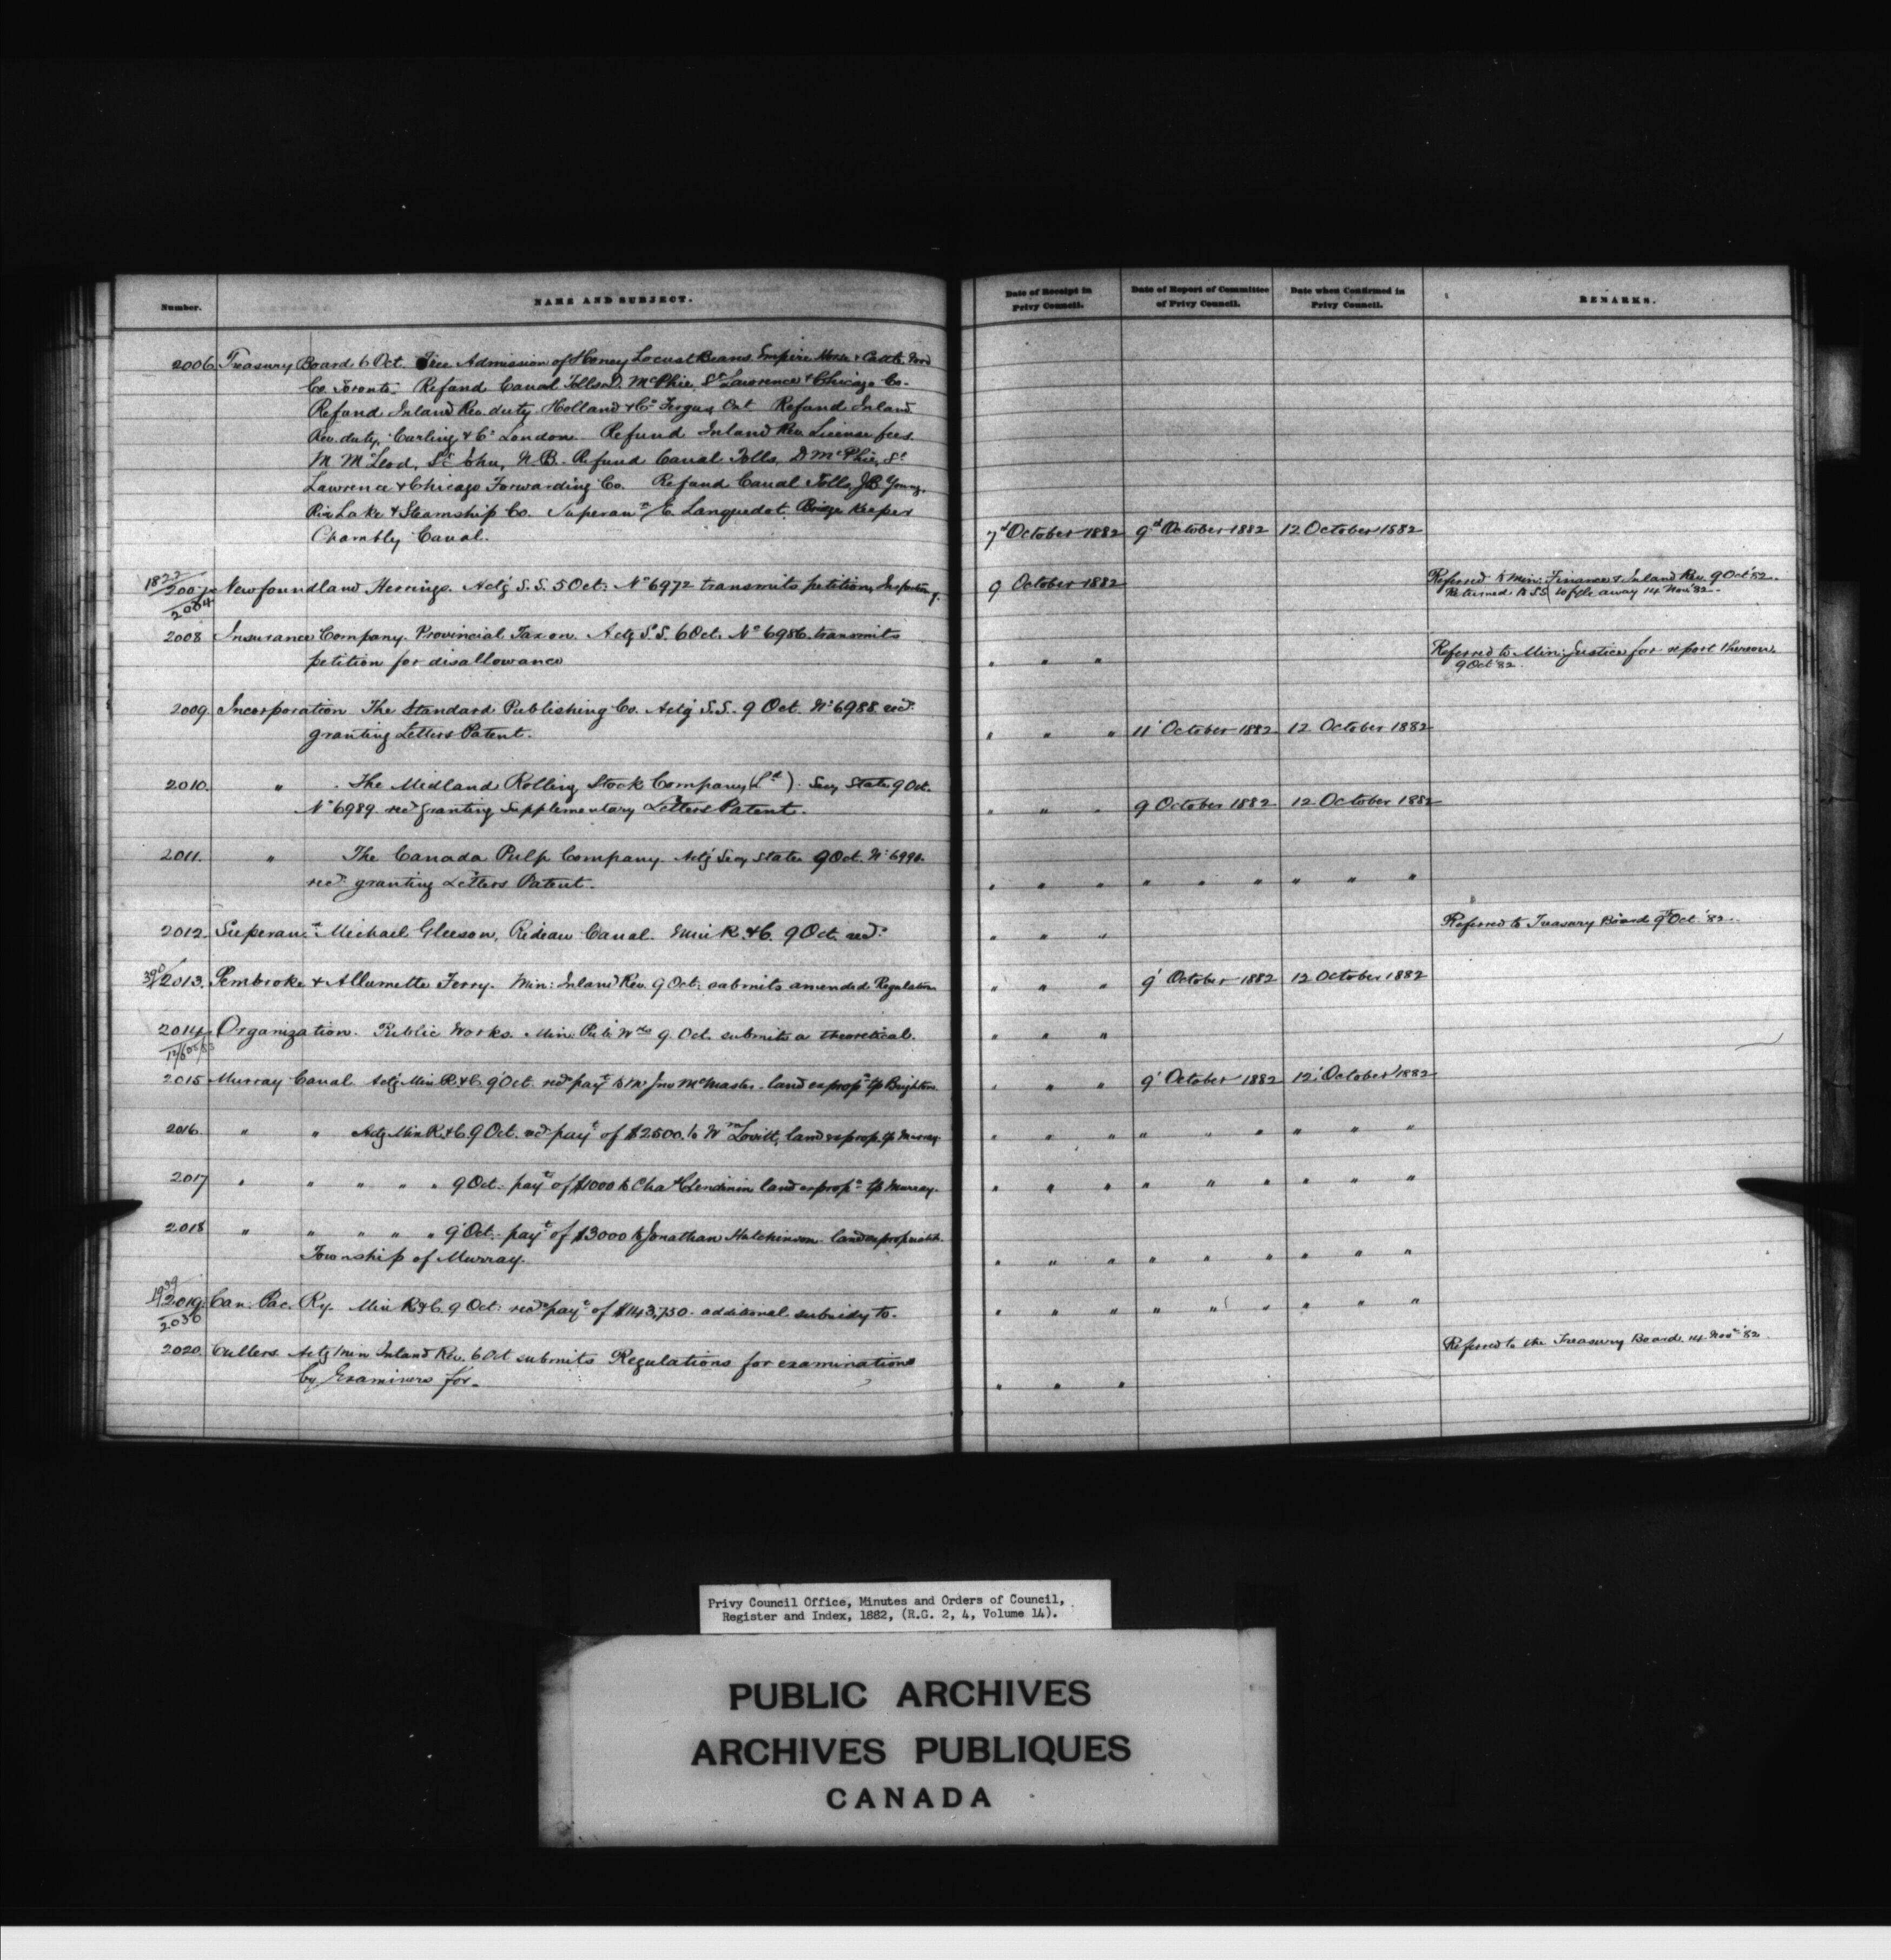 Number.
NAME AND SUBJECT.
Date of Receipt in Privy Council.
Date of Report of Committee of Privy Council.
Date when Confirmed in Privy Council.
REMARKS.
2006 Treasury Board 6 Oct. Free Admission of Honey Locust Beans Empire Horse & Cattle Food
Co Toronto. Refund Canal Tolls D. McPhie, St Lawrence & Chicago Co.
Refund Inland Rev. duty Holland & Co Fergus Ont Refund Inland
Rev. duty, Carling & Co London. Refund Inland Rev License fees.
M McLeod, St John, N.B. Refund Canal Tolls, D McPhie, St
Lawrence & Chicago Forwarding Co. Refund Canal Tolls, J.B. Young,
Lake & Steamship Co. Superant E Languedot, Bridge Keeper
Chambly Canal. 7 October 1882 9 October 1882 12 October 1882
1822 2007 2084 Newfoundland Herrings. Actg S.S. 5 Oct: No 6972 transmits petition, Inspecting 9 October 1882 Referred to Min: Finance & Inland Rev. 9 Oct '82.
Returned to S.S. to file away 14 Nov '82.
2008 Insurance Company. Provincial Tax on. Actg S.S. 6 Oct. No 6986. transmits
petition for disallowance " " " Referred to Min: Justice for report thereon.
9 Oct '82
2009 Incorporation The Standard Publishing Co. Actg S.S. 9 Oct. No 6988 recd.
granting Letters Patent. " " " 11 October 1882 12 October 1882
2010. " The Midland Rolling Stock Company (Ld). Secy State 9 Oct.
No 6989. recd granting Supplementary Letters Patent. " " " 9 October 1882 12 October 1882
2011. " The Canada Pulp Company. Actg Secy State 9 Oct. No 6990.
recd. granting Letters Patent. " " " " " " " " "
2012. Superant Michael Gleeson, Rideau Canal. Min R. & C. 9 Oct. recd. " " " Referred to Treasury Board 9 Oct. '82.
2013. Pembroke & Allumette Ferry. Min: Inland Rev. 9 Oct: submits amended Regulation " " " 9 October 1882 12 October 1882
2014 Organization. Public Works. Min Pub Wks 9 Oct. submits a theoretical. " " "
2015 Murray Canal Actg Min. R & C. 9 Oct. recd payt to Jno McMaster. land exprop. Tp Brighton. " " " 9 October 1882 12 October 1882
2016. " " Actg Min R. & C. 9 Oct. recd payt of $2500. to Wm Lovitt, land exprop. Tp Murray " " " " " " " " "
2017 " " " " " 9 Oct. payt of $1000 to Chas Clendinin land exprop. Tp Murray. " " " " " " " " "
2018 " " " " " 9 Oct. payt of $3000 to Jonathan Hutchinson. land
Township of Murray. " " " " " " " " "
2019. 2036 Can. Pac. Ry. Min R & C. 9 Oct: recd payt of $1143,750. additional subsidy to. " " " " " " " " "
2020. Cullers. Actg Min Inland Rev. 6 Oct submits Regulations for examination
by Examiners for. " " " Referred to the Treasury Board. 14 Nov '82.
Privy Council Office, Minutes and Orders of Council,
Register and Index, 1882, (R.G. 2, 4, Volume 14).
PUBLIC ARCHIVES
ARCHIVES PUBLIQUES
CANADA